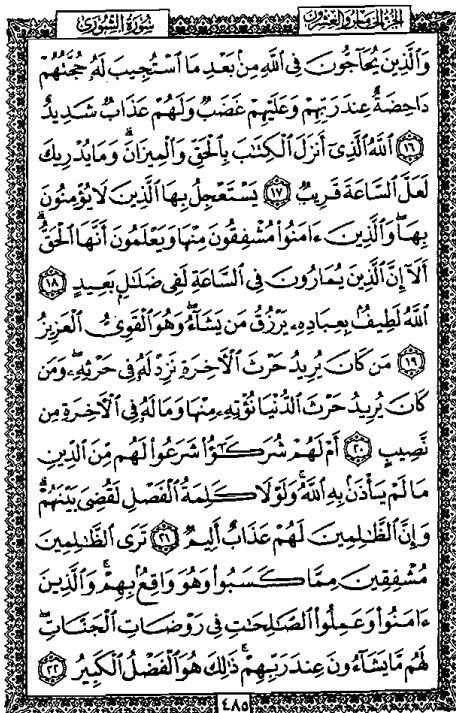 الجزء الخامس والعشرون
سورة الشورى
وَالَّذِينَ يُحَاجُّونَ فِي اللَّهِ مِنۢ بَعْدِ مَا ٱسْتُجِيبَ لَهُۥ حُجَّتُهُمْ
دَاحِضَةٌ عِندَ رَبِّهِمْ وَعَلَيْهِمْ غَضَبٌ وَلَهُمْ عَذَابٌ شَدِيدٌ
﴿١٦﴾ ٱللَّهُ ٱلَّذِىٓ أَنزَلَ ٱلْكِتَٰبَ بِٱلْحَقِّ وَٱلْمِيزَانَ ۗ وَمَا يُدْرِيكَ
لَعَلَّ ٱلسَّاعَةَ قَرِيبٌ ﴿١٧﴾ يَسْتَعْجِلُ بِهَا ٱلَّذِينَ لَا يُؤْمِنُونَ
بِهَا ۖ وَٱلَّذِينَ ءَامَنُوا۟ مُشْفِقُونَ مِنْهَا وَيَعْلَمُونَ أَنَّهَا ٱلْحَقُّ ۗ
أَلَآ إِنَّ ٱلَّذِينَ يُمَارُونَ فِى ٱلسَّاعَةِ لَفِى ضَلَٰلٍۭ بَعِيدٍ ﴿١٨﴾
ٱللَّهُ لَطِيفٌۢ بِعِبَادِهِۦ يَرْزُقُ مَن يَشَآءُ ۖ وَهُوَ ٱلْقَوِىُّ ٱلْعَزِيزُ
﴿١٩﴾ مَن كَانَ يُرِيدُ حَرْثَ ٱلْءَاخِرَةِ نَزِدْ لَهُۥ فِى حَرْثِهِۦ ۖ وَمَن
كَانَ يُرِيدُ حَرْثَ ٱلدُّنْيَا نُؤْتِهِۦ مِنْهَا وَمَا لَهُۥ فِى ٱلْءَاخِرَةِ مِن
نَّصِيبٍ ﴿٢٠﴾ أَمْ لَهُمْ شُرَكَٰٓؤُا۟ شَرَعُوا۟ لَهُم مِّنَ ٱلدِّينِ
مَا لَمْ يَأْذَنۢ بِهِ ٱللَّهُ ۚ وَلَوْلَا كَلِمَةُ ٱلْفَصْلِ لَقُضِىَ بَيْنَهُمْ ۗ
وَإِنَّ ٱلظَّٰلِمِينَ لَهُمْ عَذَابٌ أَلِيمٌ ﴿٢١﴾ تَرَى ٱلظَّٰلِمِينَ
مُشْفِقِينَ مِمَّا كَسَبُوا۟ وَهُوَ وَاقِعٌۢ بِهِمْ ۗ وَٱلَّذِينَ
ءَامَنُوا۟ وَعَمِلُوا۟ ٱلصَّٰلِحَٰتِ فِى رَوْضَاتِ ٱلْجَنَّاتِ ۖ
لَهُم مَّا يَشَآءُونَ عِندَ رَبِّهِمْ ۚ ذَٰلِكَ هُوَ ٱلْفَضْلُ ٱلْكَبِيرُ ﴿٢٢﴾
٤٨٥